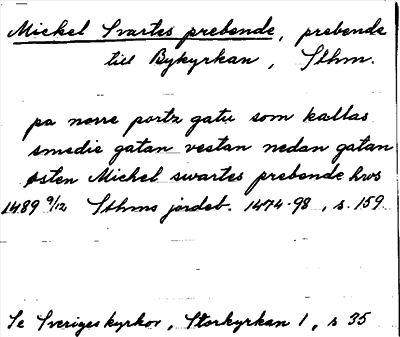 Mickel Svartes prebende, prebende
till Bykyrkan, Sthm.
pa norre portz gatu som kallas
smedie gatan vestan nedan gatan
østen Mickel swartes prebende hws
1489 9/12 Sthms jordeb. 1474-98, s. 159.
Se Sveriges kyrkor, Storkyrkan 1, s 35